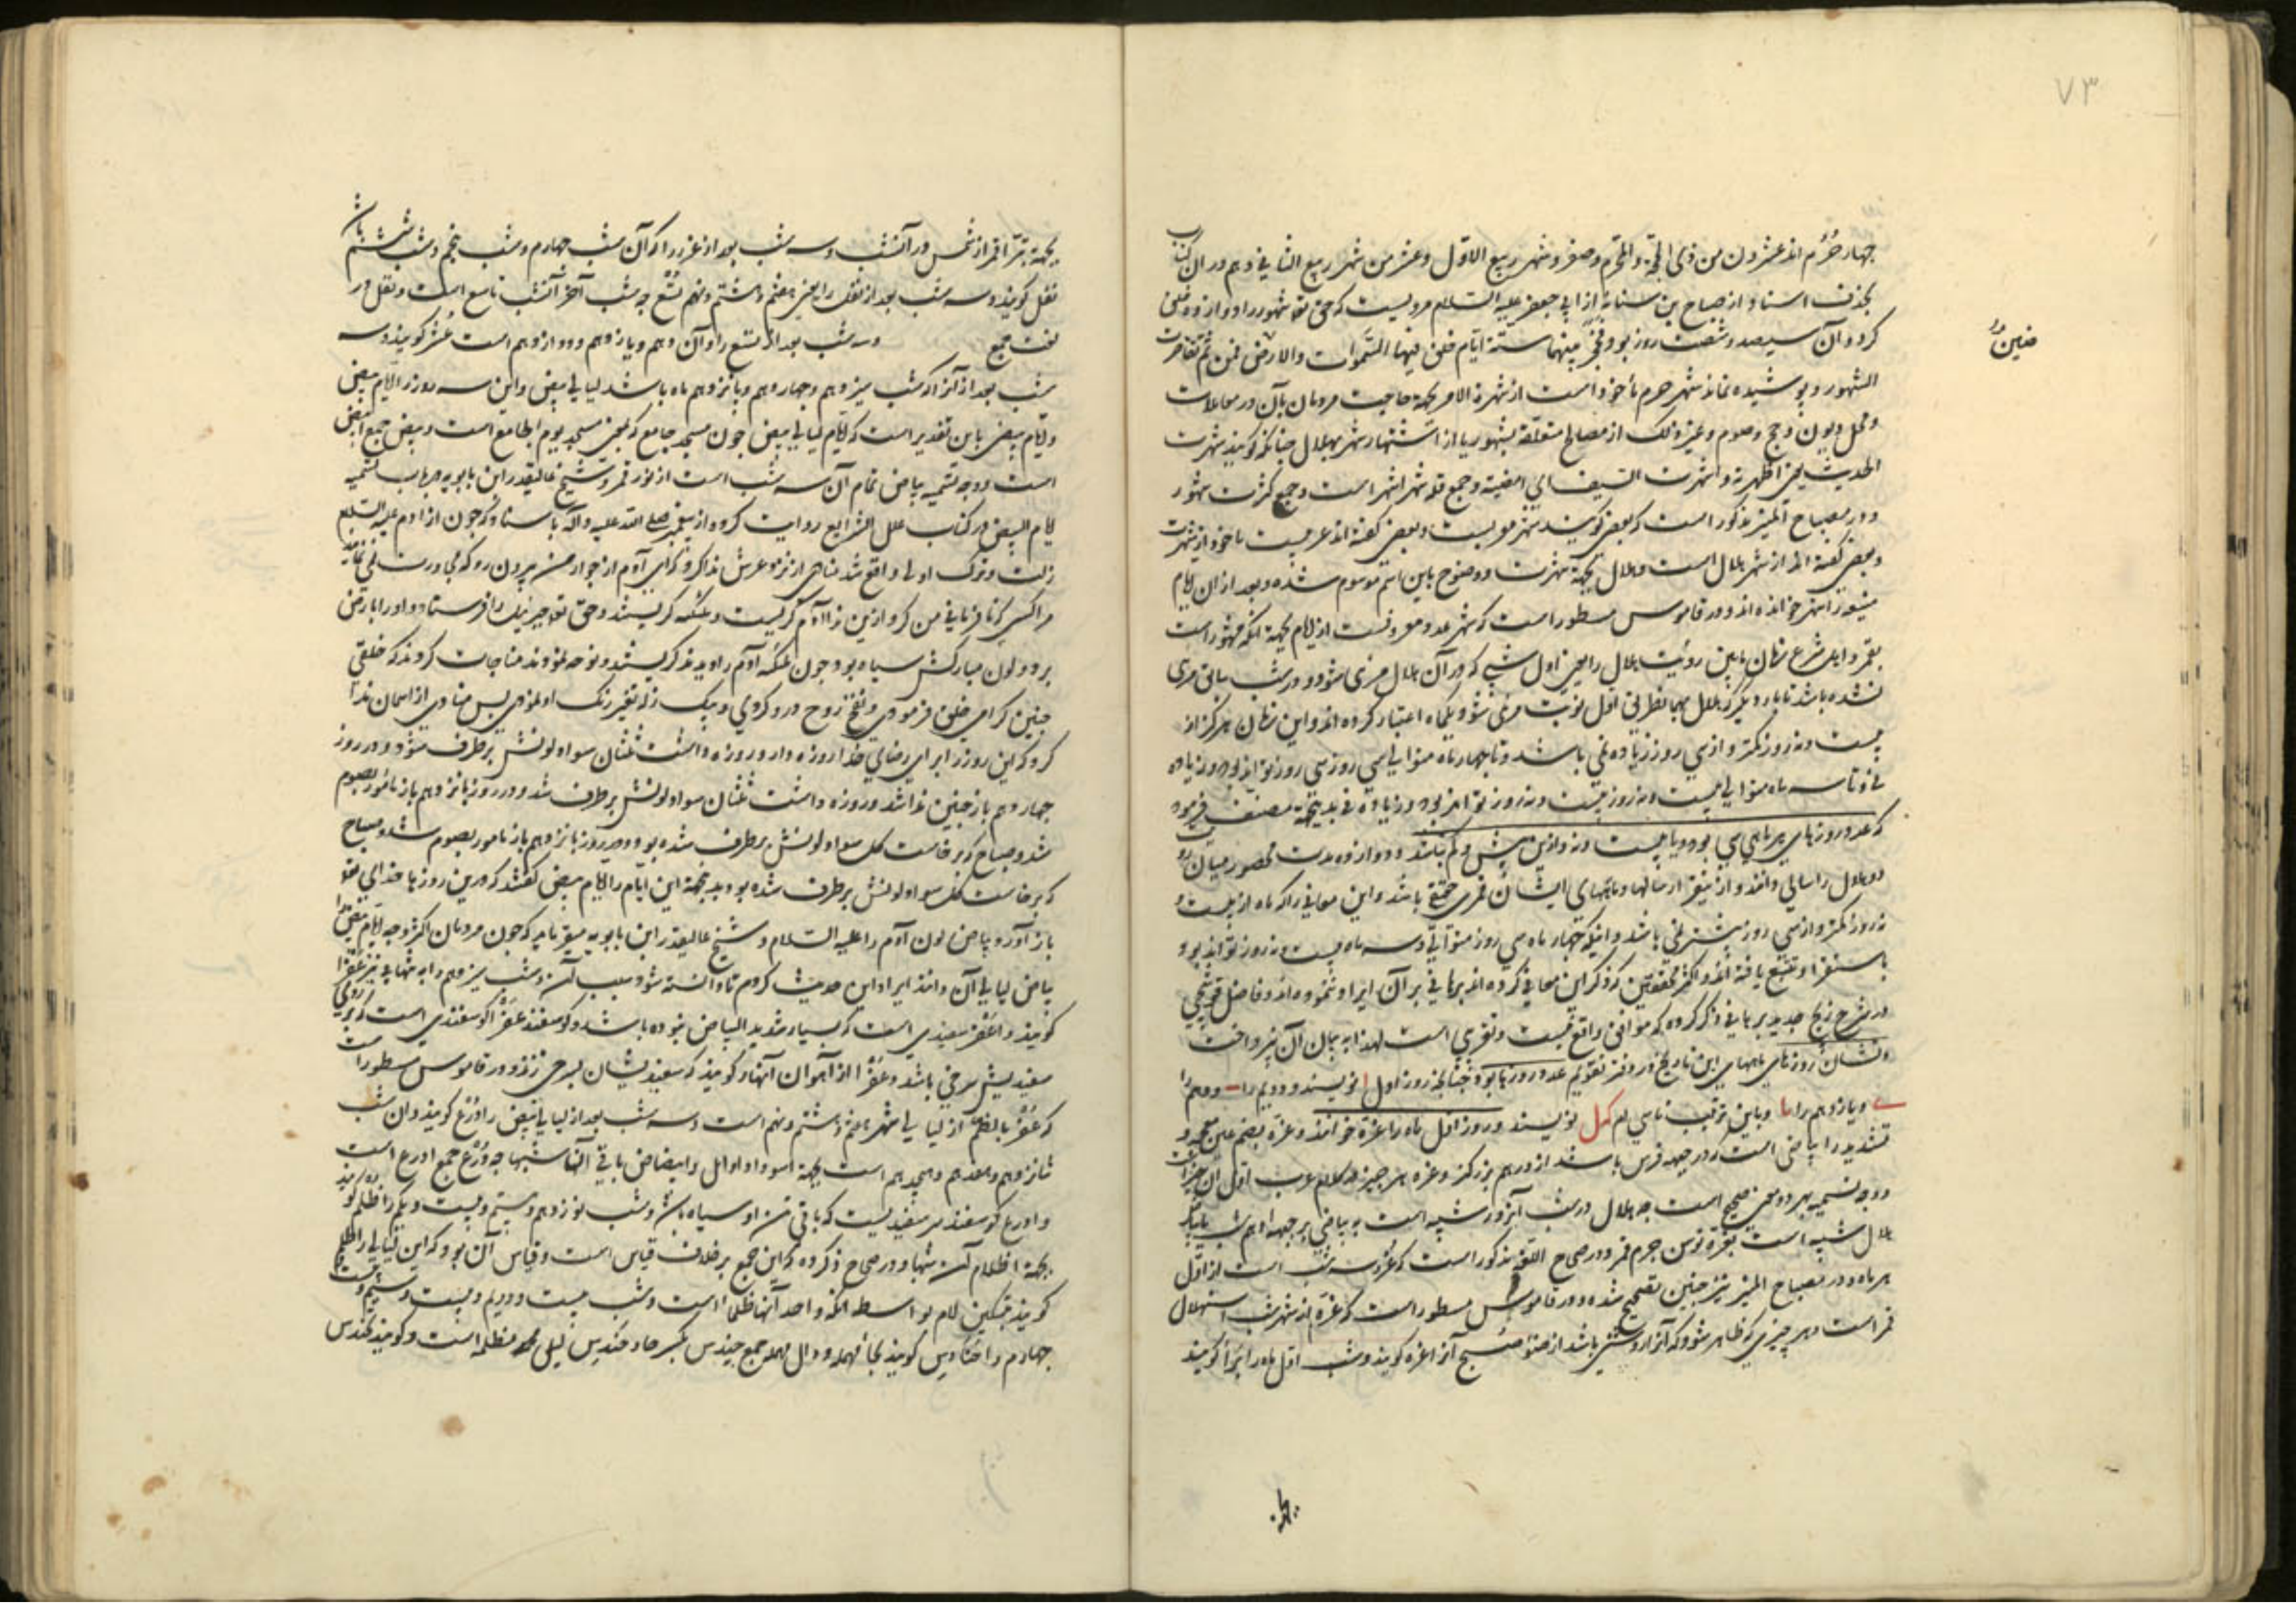 ۷۳
چهار حرم اند عشرون من ذی الحجة و المحرم و صفر و شهر ربیع الاول و عشر من شهر ربیع الثانی و هم در ان کتاب
بحذف اسناد از صباح بن سیابه از ابی جعفر علیه السلام مرویست که حق تعالی شهور را دوازده خلق
کرد و آن سیصد و شصت روز بود فحجز منها ستة ایام خلق فیها السموات والارض فمن ثم تقاصرت
الشهور و پوشیده نماند شهر حرم ماخوذ است از شهرة الامر بجهة حاجت مردمان بآن در معاملات
و محل دیون و حج و صوم و غیر ذلک از مصالح متعلقة بشهور یا از اشتهار شهر بهلال چنانکه گویند شهرت
الحدیث یعنی اظهرته و اشهرت السیف ای امضیته و جمع قله شهر اشهر است و جمع کثرت شهور
و در مصباح المنیر مذکور است که بعضی گویند شهر معربست و بعضی گفته اند عربیست ماخوذ از شهرت
و بعضی گفته اند از شهر هلال است و هلال بجهة شهرت و وضوح باین اسم موسوم شده و بعد از ان ایام
مشهور را شهر خوانده اند و در قاموس مسطور است که شهر عدد معروفست از ایام بجهة آنکه مشهور است
بقمر و اهل شرع زمان مابین رؤیت هلال را یعنی اول شبی که در آن هلال مرئی شود و در شب سابق مرئی
نشده باشد تا بار دیگر که هلال بهمان طریق اول نوبت مرئی شود یکماه اعتبار کرده اند و این زمان هرگز از
بیست و نه روز کمتر و از سی روز زیاده نمی باشد و تا چهار ماه متوالی سی روز سی روز تواند بود و زیاده
نی و تا سه ماه متوالی بیست و نه روز بیست و نه روز تواند بود و زیاده نی بدینجهة مصنف فرمود
که عدد روزهای هر ماهی سی بود و یا بیست و نه و ازین بیش و کم نباشد و دوازده مدت محصور میان
دو هلال را سالی دانند و ازینقرار سالها و ماههای ایشان قمری حقیقی باشد و این معانی را که ماه از بیست و
نه روز کمتر و از سی روز بیشتر نمی باشد و اینکه چهار ماه سی روز متوالی و سه ماه بیست و نه روز تواند بود
باستقرا و تتبع یافته اند و اکثر محققین که ذکر این معانی کرده اند برهانی بر آن ایراد ننموده اند و فاضل قوشجی
در شرح زیج جدید برهانی ذکر کرده که موافق واقع نیست و تقریبی است لهذا به بیان آن نپرداخت
و نشان روزهای ماههای این تاریخ در دفتر تقویم عدد روزها بود چنانچه روز اول ا نویسند و دویم را ب و دهم را
ی و یازدهم را یا و باین ترتیب تا سی ام که ل نویسند و روز اول ماه را غره خوانند و غره بضم غین معجمه و
تشدید را بیاضی است که در جبهه فرس باشد از درهم بزرگتر و غره هر چیز در کلام عرب اول آن چیز است
و وجه تسمیه بهر دو معنی صحیح است چه هلال در شب آنروز شبیه است به بیاضی بر جبهه ادهم شب یا آنکه
هلال شبیه است بغره فرس جرم قمر و در صحاح اللغه مذکور است که غرر سه شب است از اول
هر ماه و در مصباح المنیر نیز چنین تصحیح شده و در قاموس مسطور است که غره از شهر شب استهلال
قمر است و هر چیزی که ظاهر شود که آنرا روشنی باشد از ضوء صبح آنرا غره گویند و شب اول ماه را برا گویند
بجهة
بجهة تبرا قمر از شمس در آنشب و سه شب بعد از غرر را که آن شب چهارم و شب پنجم و شب ششم باشد
نفل گویند و سه شب بعد از نفل را یعنی هفتم و هشتم و نهم تسع چه شب آخر آنشب تاسع است و نفل در
لغت جمع و سه شب بعد از تسع را و آن دهم و یازدهم و دوازدهم است عشر گویند و سه
شب بعد از آنرا که شب سیزدهم و چهاردهم و پانزدهم ماه باشد لیالی بیض و این سه روز را ایام بیض
و ایام بیض باین تقدیر است که ایام لیالی بیض چون مسجد جامع که یعنی مسجد یوم الجامع است و بیض جمع ابیض
است و وجه تسمیه بیاض تمام آن سه شب است از نور قمر و شیخ عالیقدر ابن بابویه در باب تسمیه
ایام البیض در کتاب علل الشرایع روایت کرده از پیغمبر صلی الله علیه وآله باسناد که چون از آدم علیه السلام
زلت و ترک اولی واقع شد منادی از نزد عرش ندا کرد که ای آدم از جوار من بیرون رو که مجاورت نمی نماید
مرا کسی که نافرمانی من کرد ازین ندا آدم گریست و ملئکه گریستند و حق تعالی جبرئیل را فرستاد و او را بارض
برد و لون مبارکش سیاه بود چون ملئکه آدم را دیدند گریستند و نوحه نمودند مناجات کردند که خلقی
چنین گرامی خلق فرمودی و نفخ روح درو کردی و بیک زله تغییر رنگ او نمودی پس منادی از اسمان ندا
کرد که این روز را برای رضای خدا روزه دار و روزه داشت ثلثان سواد لونش برطرف شود و در روز
چهاردهم باز چنین ندا شد و روزه داشت ثلثان سواد لونش برطرف شد و در روز پانزدهم باز مامور بصوم
شد و صباح که برخاست کل سواد لونش برطرف شده بود و در روز پانزدهم باز مامور بصوم شد و صباح
که برخاست کل سواد لونش برطرف شده بود بدینجهة این ایام را ایام بیض گفتند که درین روزها خدای تعالی
باز آورد بیاض لون آدم را علیه السلام و شیخ عالیقدر ابن بابویه میفرماید که چون مردمان اکثر وجه ایام بیض را
بیاض لیالی آن دانند ایراد این حدیث کردم تا دانسته شود سبب آن و شب سیزدهم را به تنهایی نیز عفرا
گویند و اعفر سفیدی است که بسیار شدید البیاض نبوده باشد و گوسفند عفرا گوسفندی است که بر روی
سفیدیش سرخی باشد و عفر از آهوان آنها را گویند که سفیدیشان بسرخی زند و در قاموس مسطور است
که عفر بالضم از لیالی شهر هفتم و هشتم و نهم است و سه شب بعد از لیالی بیض را درع گویند و ان شب
شانزدهم و هفدهم و هیجدهم است بجهة اسوداد اوایل و ابیضاض باقی آنها شبها چه درع جمع ادرع است
و ادرع گوسفند سر سفیدیست که باقی تن او سیاه باشد و شب نوزدهم و بیستم و بیست و یکم را ظلم گویند
بجهة اظلام آن شبها و در صحاح ذکر کرده که این جمع برخلاف قیاس است و قیاس آن بود که این لیالی را ظلم
گویند بتسکین لام بواسطه آنکه واحد آنها ظلما است و شب بیست و دویم و بیست و سیم و بیست و
چهارم را حنادس گویند بحاء مهمله و دال مهمله جمع حندس بکسر حا و حندس لیلی مظلمه است و گویند تحندس